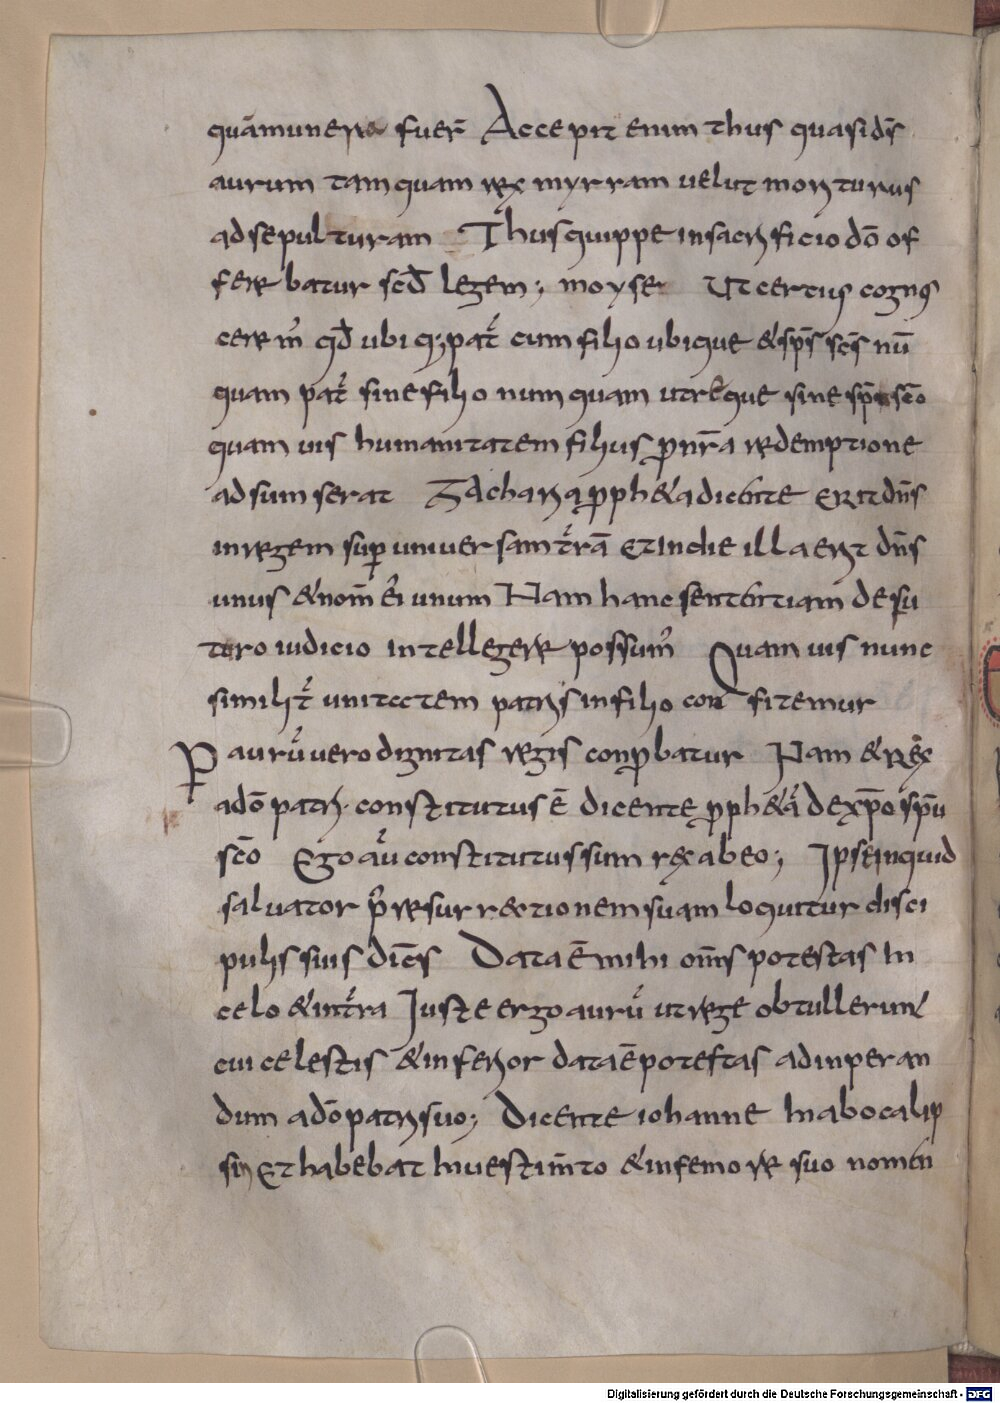 quāmunera fuer̄ Accepit enim thus quasi ds̄
aurum tamquam rex myrram velut moriturus
ad sepulturam Thus quippe in sacrificio dō of
ferebatur scd̄ legem; moyse Ut certius cognos
cerem᾿ qd̄ ubiq; pat᾿ cum filio ubique & sps̄ scs̄ nū
quam pat᾿ sine filio numquam uterque sine spū scō
quamuis humanitatem filius ꝓ nr̄a redemptione
adsumserat Zacharia ꝓph&a dicente Erit dn̄s
in regem suꝑ uniuersam t᾿rā Et in die illa erit dn̄s
unus & nom̄ ei᾿ unum Nam hanc sententiam de fu
turo iudicio intellegere possum᾿ Quamuis nunc
similit᾿ unitatem patris in filio confitemur
P aurū uero dignitas regis conꝓbatur Nam & rex
a dō patri constitutus ē dicente ꝓph&a de xp̄o spū
scō Ego aū constitutus sum rex ab eo; Ipse inquid
saluator p᾿ resurrectionem suam loquitur disci
pulis suis dicēs Data ē mihi om̄s potestas In
celo & in t᾿ra Iuste ergo aurū ut rege obtullerunt
cui celestis & inferior data ē potestas ad inperan
dum a dō patri suo; Dicente iohanne In abocalip
sin Et habebat In uestim̄to & in femore suo nomen
Digitalisierung gefördert durch die Deutsche Forschungsgemeinschaft - DFG